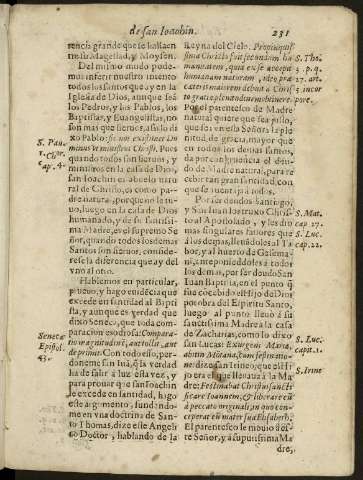 de san Ioachin.
231
rencia grande que se halla en
tre su Magestad, y Moysen.
Del mismo modo pode-
mos inferir nuestro intento
todos los santos que ay en la
Iglesia de Dios, aunque seã
los Pedros, y los Pablos, los
Baptistas, y Euangelistas, no
son mas que sieruos, assi lo di
xo Pablo: sic nos existimet
minus vt ministros Christi. Pues
quando todos son sieruos, y
ministros en la casa de Dios,
san Ioachin es abuelo natu
ral de Christo, es como pa-
dre natural, porque no le tu-
uo, luego en la casa de Dios
humanado, y de su santissi-
ma Madre, es el supremo Se
ñor, quando todos los demas
Santos son sieruos, conside-
rese la diferencia que ay del
vno al otro.
Hablemos en particular,
prueuo, y hago euidẽcia que
excede en santidad al Bapti
sta, y aunque es verdad que
dixo Seneca, que toda com-
paracion es odiosa: Compara-
de primit. Con todo esso, per-
doneme san Iuã, q̃ la verdad
ha de salir a luz esta vez, y
para prouar que san Ioachin
le excede en santidad, hago
este argumento, fundando-
me en vna doctrina de Santo
Thomas, dize este Angeli
co Doctor, hablando de la
S. Pau
1. Cor.
cap. 4.
Seneca
Epist.
43.
Reyna del Cielo. Propinquis
sima Christo fuit secundum hu
manitatem, quia ex ea accepit
humanam naturam, ideo præ
cæteris maiorem debuit a Christ
to gratiæ plenitudinem obtinere.
Por el parentesco de Madre
natural quiere que sea pues lo,
que se dè en esta Señora la ple
nitud, de gracia, mayor que
en todos los demas santos,
de Madre natural, para re
cebir tan gran santidad, con
que se auentajò a todos.
Por ser deudos Santiago,
y San Iuan Iostruxo Chris-
to al Apostolado, y les dio
mas singulares fauores que
a los demas, lleuãdolos al Ta
bor, y al huerto de Getsema-
ni, anteponiedolos à todos
los demas, por ser deudo San
Iuan Baptista, en el punto q̃
fue cõcebido el Hijo de Dios
por obra del Espiritu Santo,
luego al punto lleuò à su
santissima Madre a la casa
de Zacharias, como lo dixo
san Lucas: Exurgens Maria,
abijt in Mõtana, cum festinatio-
ne: dize san Irineo, que el Hi
jo era el que lleuaua à la Ma
dre: Festinabat Christus sancti
ficare Ioannem, & liberare eũ
à peccato originali, in quo con-
ceperat eũ mater sua Elisabeth.
El parentesco le mouiò a es-
te Señor, y a su purissima Ma
dre,
S. Tho.
3. p. q.
27. art.
5. in cor
pore.
S. Mat.
cap. 17.
S. Luc.
cap. 22.
S. Luc.
capt. 1.
S. Irine